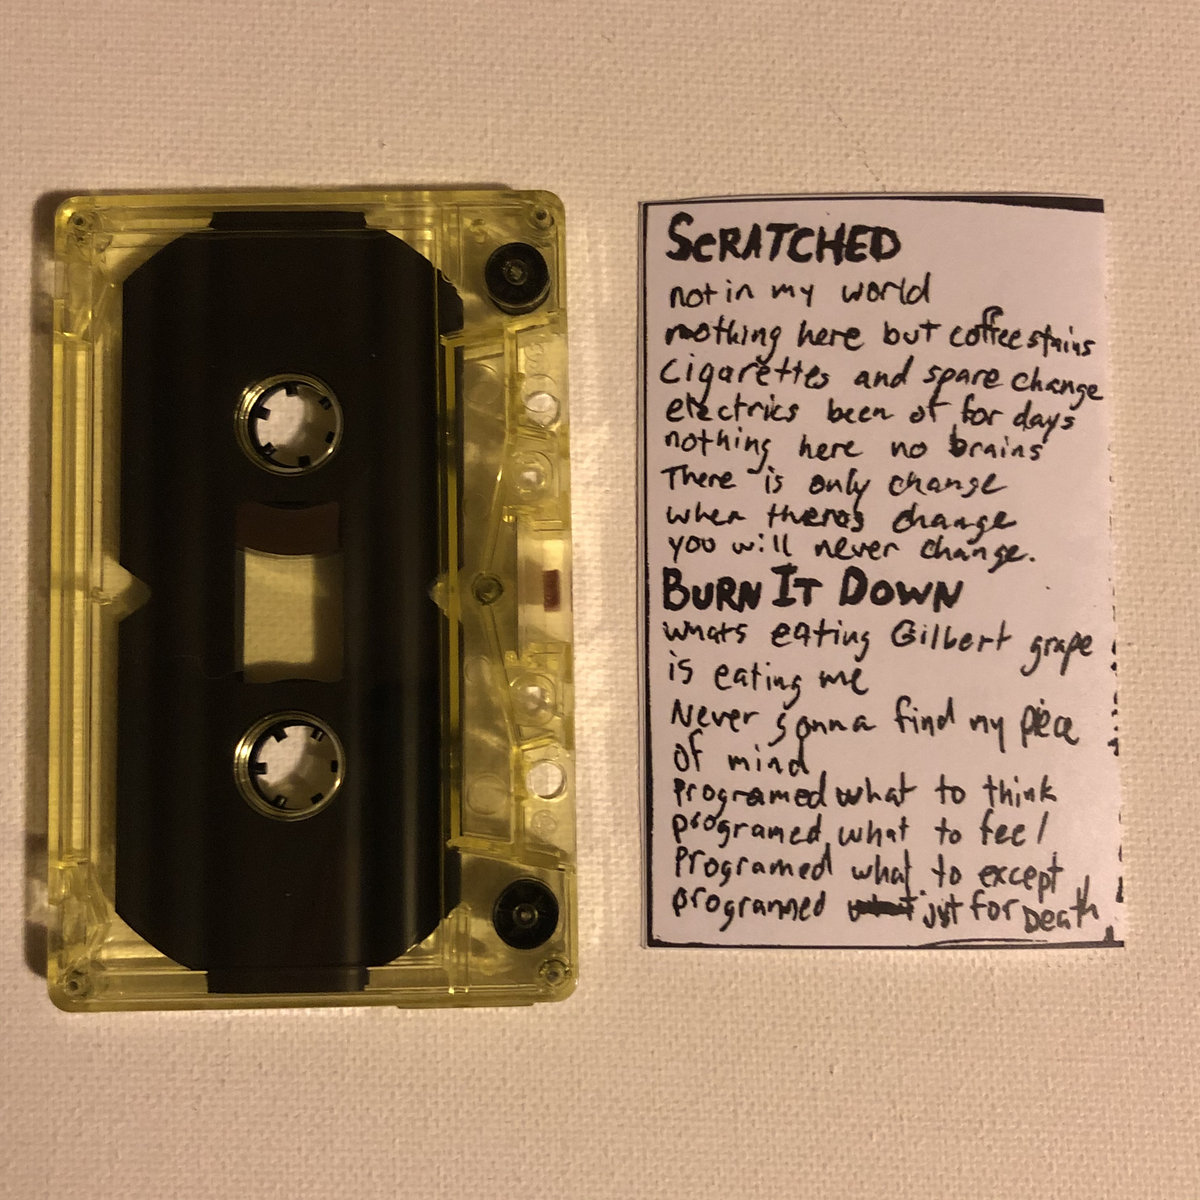 SCRATCHED
not in my world
nothing here but coffee stains
cigarettes and spare change
electrics been of for days
nothing here no brains
There is only change
when theres change
you will never change.
BURN IT DOWN
whats eating Gilbert grape
is eating me
Never gonna find my piece
of mind
programed what to think
programed what to feel
programed what to except
programmed just for Death